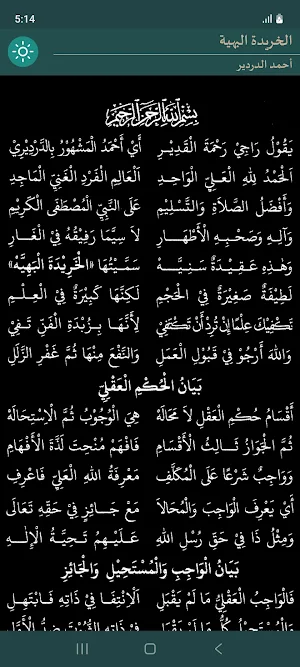 5:14
الخريدة البهية
أحمد الدردير
بِسْمِ اللهِ الرَّحْمَنِ الرَّحِيمِ
يَقُولُ رَاجِي رَحْمَةَ الْقَدِيرِ أَيْ أَحْمَدُ الْمَشْهُورُ بِالدَّرْدِيرِيْ
اَلْحَمْدُ لِلهِ الْعَلِيِّ الْوَاحِدِ اَلْعَالِمِ الْفَرْدِ الْغَنِيِّ الْمَاجِدِ
وَأَفْضَلُ الصَّلَاةِ وَالتَّسْلِيمِ عَلَى النَّبِيِّ الْمُصْطَفَى الْكَرِيْمِ
وَآلِهِ وَصَحْبِهِ الْأَطْهَارِ لَا سِيَّمَا رَفِيْقُهُ فِي الْغَارِ
وَهٰذِهِ عَقِيْدَةٌ سَنِيَّهْ سَمَّيْتُهَا «الْخَرِيْدَةَ الْبَهِيَّهْ»
لَطِيْفَةٌ صَغِيْرَةٌ فِي الْحَجْمِ لَكِنَّهَا كَبِيْرَةٌ فِي الْعِلْمِ
تَكْفِيْكَ عِلْمًا إِنْ تُرِدْ أَنْ تَكْتَفِيْ لِأَنَّهَا بِزُبْدَةِ الْفَنِّ تَفِيْ
وَاللهَ أَرْجُوْ فِي قَبُوْلِ الْعَمَلِ وَالنَّفْعَ مِنْهَا ثُمَّ غَفْرَ الزَّلَلِ
بَيَانُ الْحُكْمِ الْعَقْلِيِّ
أَقْسَامُ حُكْمِ الْعَقْلِ لَا مَحَالَهْ هِيَ الْوُجُوْبُ ثُمَّ الْاِسْتِحَالَهْ
ثُمَّ الْجَوَازُ ثَالِثُ الْأَقْسَامِ فَافْهَمْ مُنِحْتَ لَذَّةَ الْأَفْهَامِ
وَوَاجِبٌ شَرْعًا عَلَى الْمُكَلَّفِ مَعْرِفَةُ اللهِ الْعَلِيِّ فَاعْرِفِ
أَيْ يَعْرِفَ الْوَاجِبَ وَالْمُحَالَا مَعْ جَائِزٍ فِي حَقِّهِ تَعَالَى
وَمِثْلُ ذَا فِي حَقِّ رُسْلِ اللهِ عَلَيْهِمُ تَحِيَّةُ الْإِلٰهِ
بَيَانُ الْوَاجِبِ وَالْمُسْتَحِيْلِ وَالْجَائِزِ
فَالْوَاجِبُ الْعَقْلِيُّ مَا لَمْ يَقْبَلِ الْاِنْتِفَا فِي ذَاتِهِ فَابْتَهِلِ
وَالْمُسْتَحِيْلُ كُلُّ مَا لَمْ يَقْبَلِ فِي ذَاتِهِ الثُّبُوْتَ ضِدُّ الْأَوَّلِ